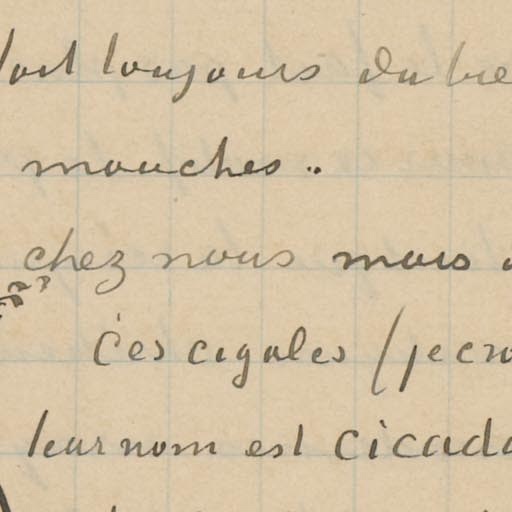 toujours du
mouches..
chez nous mais
ces cigales (je cro
leur nom est cicada